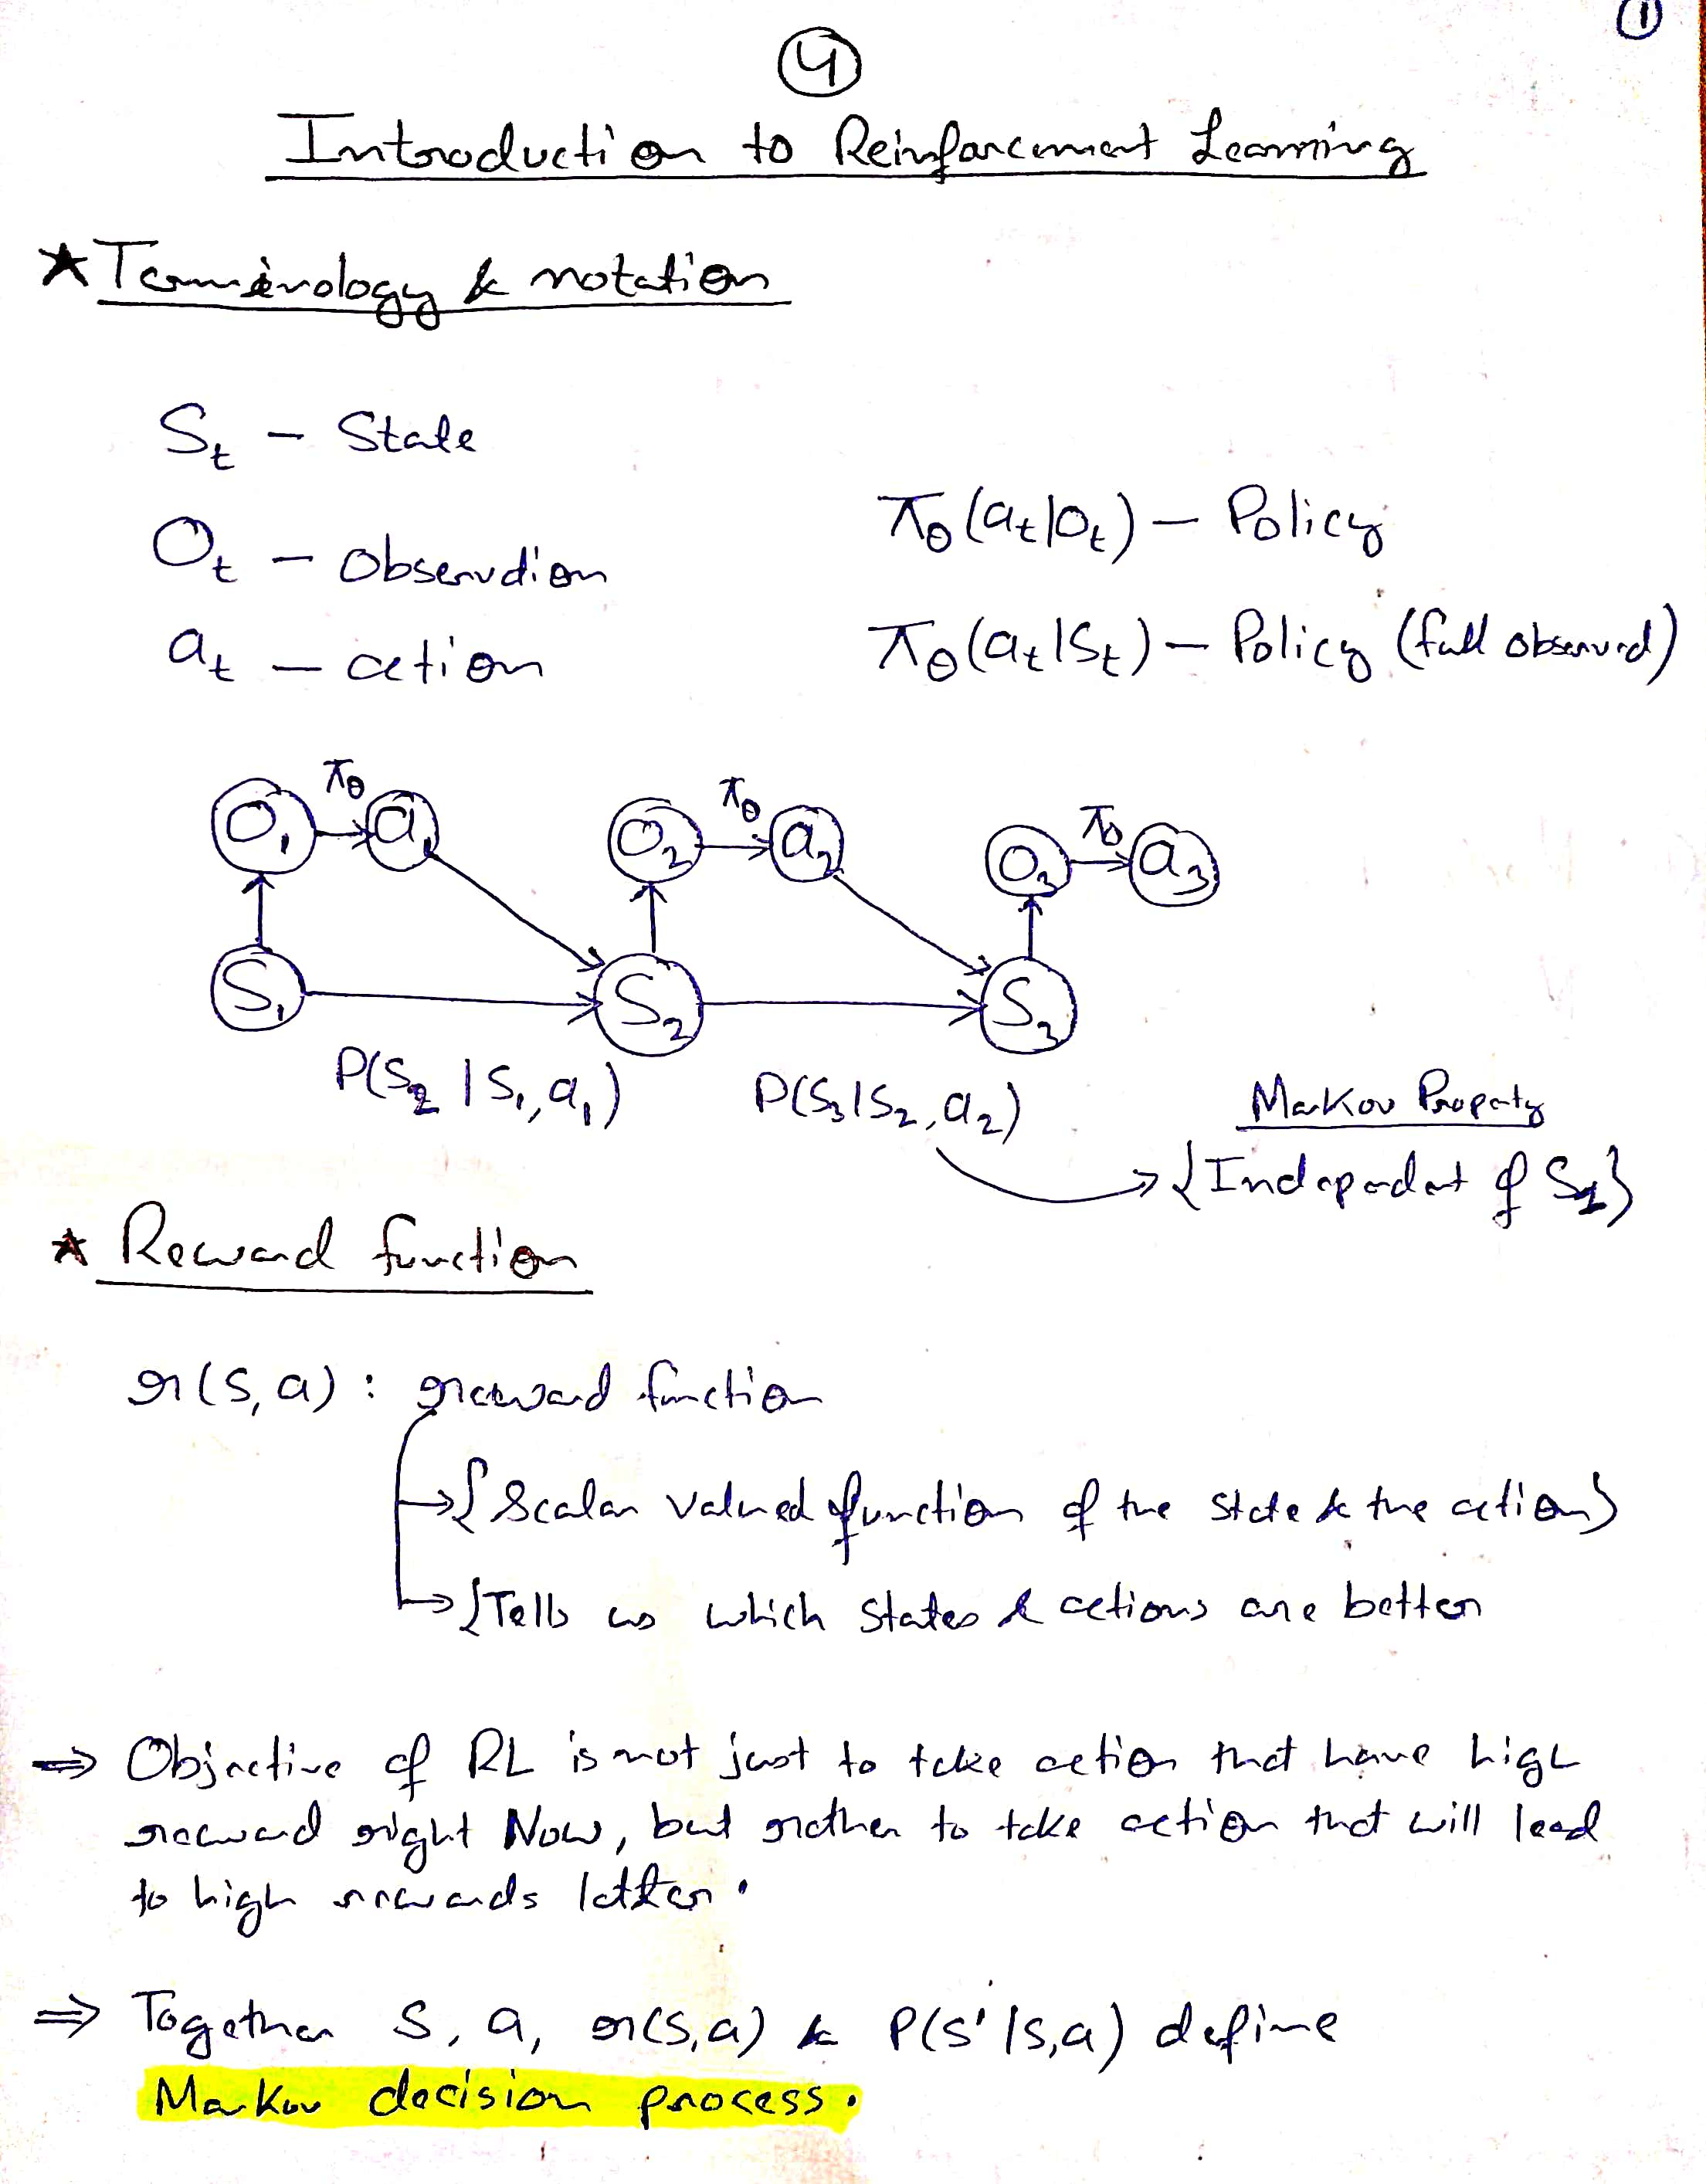 ①
④
Introduction to Reinforcement Learning
★ Terminology & notation
S_t – State
O_t – Observation
π_θ(a_t|O_t) – Policy
a_t – action
π_θ(a_t|S_t) – Policy (full observed)
π_θ π_θ π_θ
O_1 a_1 O_2 a_2 O_3 a_3
S_1 S_2 S_3
P(S_2 | S_1, a_1) P(S_3|S_2, a_2)
Markov Property
{Independent of S_1}
★ Reward function
r(s, a) : reward function
{Scalar valued function of the state & the action}
{Tells us which states & actions are better
⇒ Objective of RL is not just to take action that have high
reward right Now, but rather to take action that will lead
to high rewards latter.
⇒ Together S, a, r(s,a) & P(s'|s,a) define
Markov decision process.